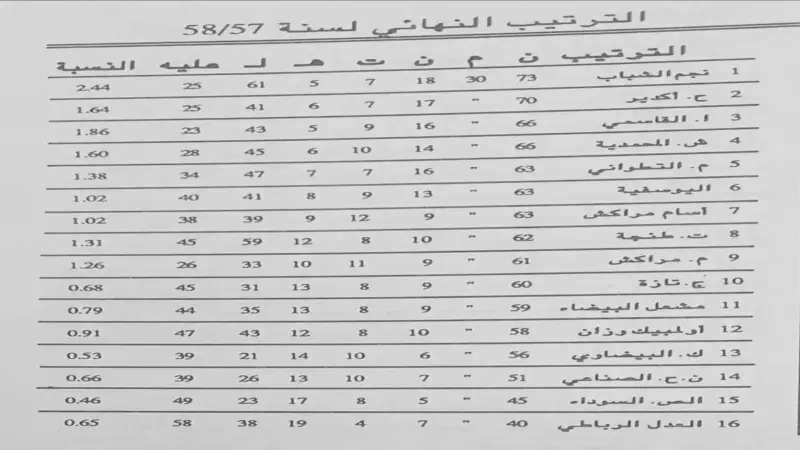 الترتيب النهائي لسنة 58/57
الترتيب ن م ن ت هـ لـ عليه النسبة
1 نجم الشباب 73 30 18 7 5 61 25 2.44
2 ح. أكدير 70 " 17 7 6 41 25 1.64
3 ا. القاسمي 66 " 16 9 5 43 23 1.86
4 ش. المحمدية 66 " 14 10 6 45 28 1.60
5 م. التطواني 63 " 16 7 7 47 34 1.38
6 اليوسفية 63 " 13 9 8 41 40 1.02
7 أسام مراكش 63 " 9 12 9 39 38 1.02
8 ت. طنجة 62 " 10 8 12 59 45 1.31
9 م. مراكش 61 " 9 11 10 33 26 1.26
10 ج. تازة 60 " 9 8 13 31 45 0.68
11 مشعل البيضاء 59 " 9 8 13 35 44 0.79
12 أولمبيك وزان 58 " 10 8 12 43 47 0.91
13 ك. البيضاوي 56 " 6 10 14 21 39 0.53
14 ن. ح. الصناعي 51 " 7 10 13 26 39 0.66
15 الص. السوداء 45 " 5 8 17 23 49 0.46
16 العدل الرباطي 40 " 7 4 19 38 58 0.65